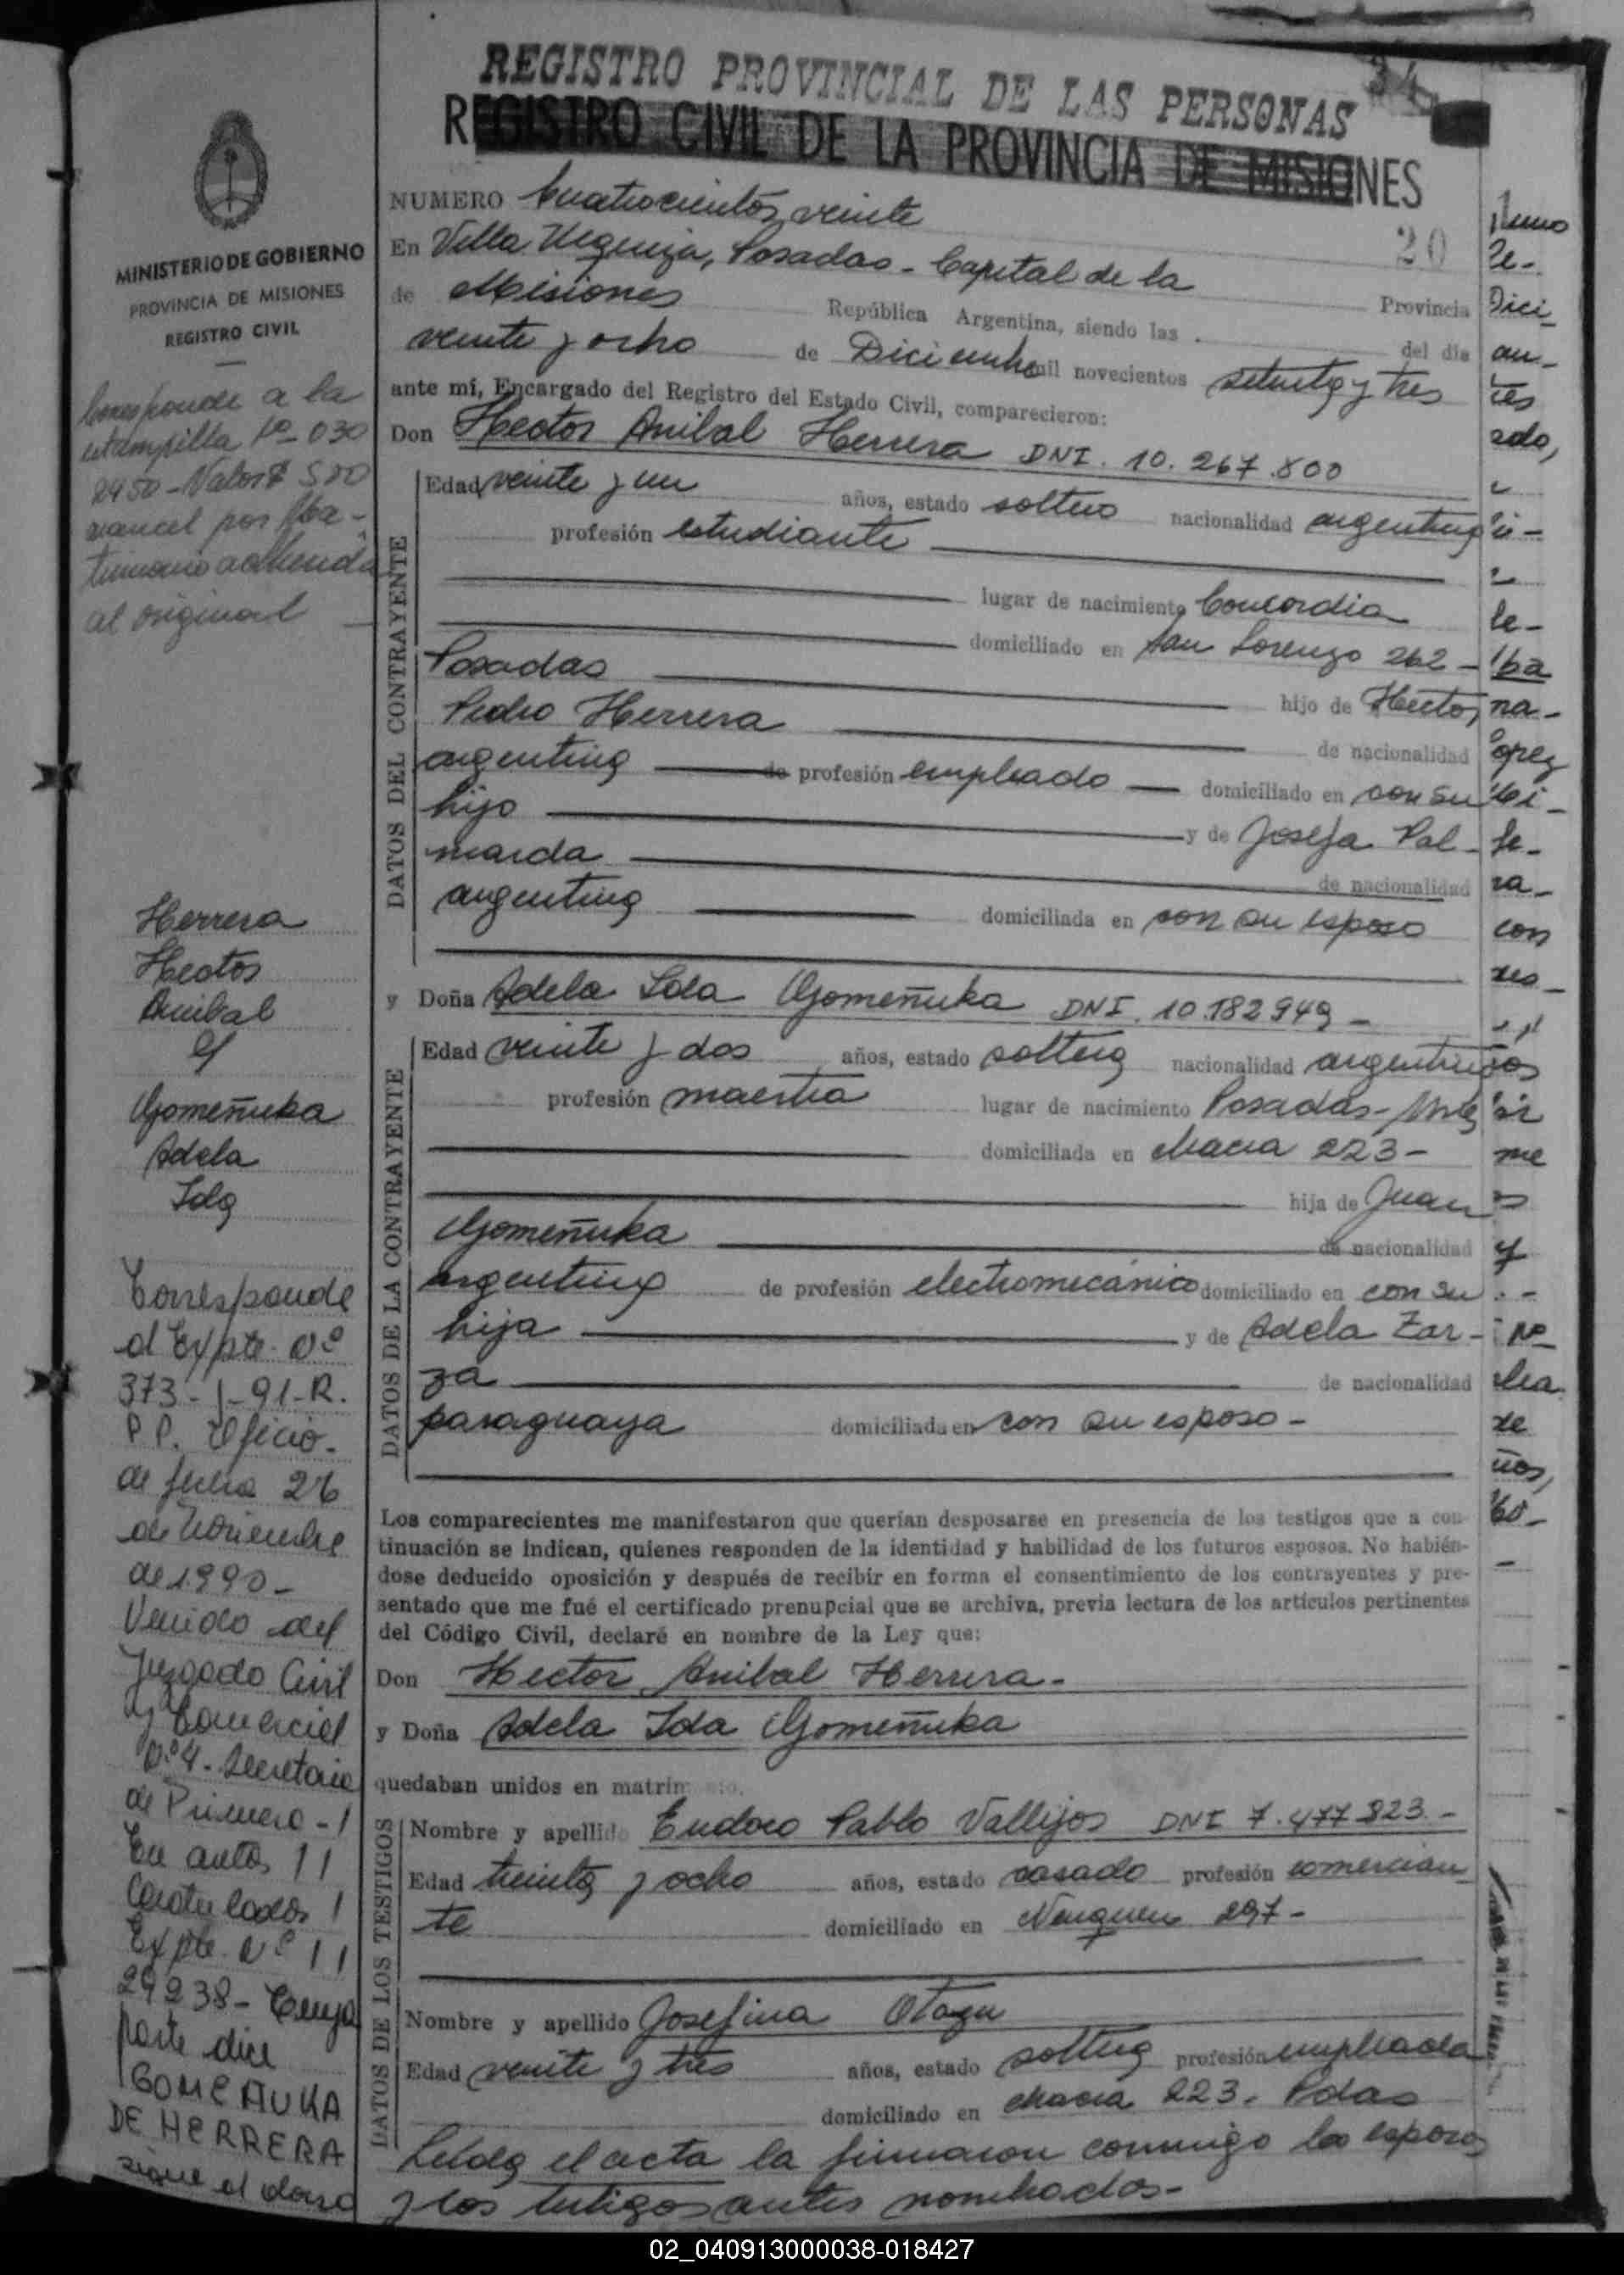 REGISTRO PROVINCIAL DE LAS PERSONAS
34
REGISTRO CIVIL DE LA PROVINCIA DE MISIONES
MINISTERIO DE GOBIERNO
PROVINCIA DE MISIONES
REGISTRO CIVIL
Corresponde a la
estampilla Nº 030
2450 - Valor $ 500
arancel por Ma-
trimonio adherida
al original
Herrera
Hector
Anibal
c/
Gomeñuka
Adela
Ida
Corresponde
al Expte. nº
373-1-91-R.
P.P. Oficio.
de fecha 26
de Noviembre
de 1990-
Venido del
Juzgado Civil
y Comercial
nº 4. Secretaria
de Primero -
En autos
Caratulados
Expte. nº
29238 - Cuya
parte dice
GOMEÑUKA
DE HERRERA
sigue al dorso
NUMERO Cuatrocientos veinte
20
En Villa Urquiza, Posadas - Capital de la Provincia
de Misiones República Argentina, siendo las del día
veinte y ocho de Diciembre mil novecientos setenta y tres
ante mí, Encargado del Registro del Estado Civil, comparecieron:
Don Hector Anibal Herrera DNI. 10.267.800
DATOS DEL CONTRAYENTE
Edad veinte y un años, estado soltero nacionalidad argentina
profesión estudiante
lugar de nacimiento Concordia
domiciliado en San Lorenzo 262 -
Posadas hijo de Hector
Pedro Herrera de nacionalidad
argentina de profesión empleado domiciliado en con su
hijo y de Josefa Pal-
marda de nacionalidad
argentina domiciliada en con su esposo
y Doña Adela Ida Gomeñuka DNI. 10.182949 -
DATOS DE LA CONTRAYENTE
Edad veinte y dos años, estado soltera nacionalidad argentina
profesión maestra lugar de nacimiento Posadas - Mnes
domiciliada en Chacra 223 -
hija de Juan
Gomeñuka de nacionalidad
argentina de profesión electromecánico domiciliado en con su
hija y de Adela Zar-
za de nacionalidad
paraguaya domiciliada en con su esposo -
Los comparecientes me manifestaron que querían desposarse en presencia de los testigos que a con-
tinuación se indican, quienes responden de la identidad y habilidad de los futuros esposos. No habién-
dose deducido oposición y después de recibir en forma el consentimiento de los contrayentes y pre-
sentado que me fué el certificado prenupcial que se archiva, previa lectura de los artículos pertinentes
del Código Civil, declaré en nombre de la Ley que:
Don Hector Anibal Herrera -
y Doña Adela Ida Gomeñuka
quedaban unidos en matrimonio.
DATOS DE LOS TESTIGOS
Nombre y apellido Eudoro Pablo Vallejos DNI 7.477.823. -
Edad treinta y ocho años, estado casado profesión comercian
te domiciliado en Neuquen 297 -
DATOS DE LOS TESTIGOS
Nombre y apellido Josefina Otazu
Edad veinte y tres años, estado soltera profesión empleada
domiciliado en Chacra 223 - Pdas
Leída el acta la firmaron conmigo los esposos
y los testigos antes nombrados -
02_040913000038-018427